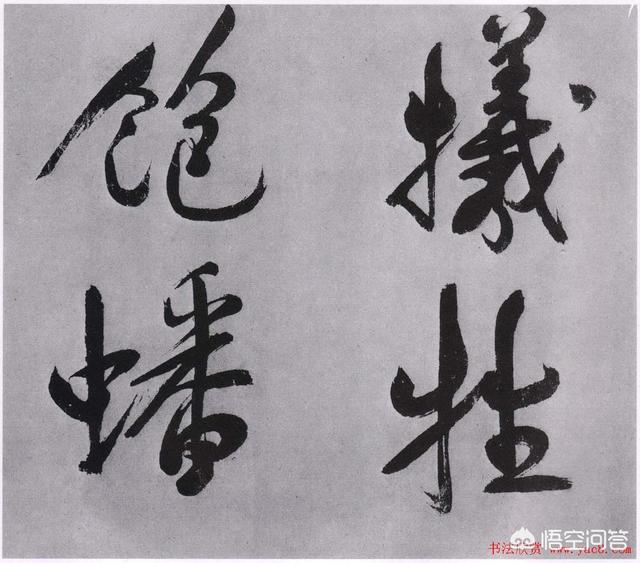 犧牲
飽蟠
书法欣赏 www.yac8.com
悟空问答